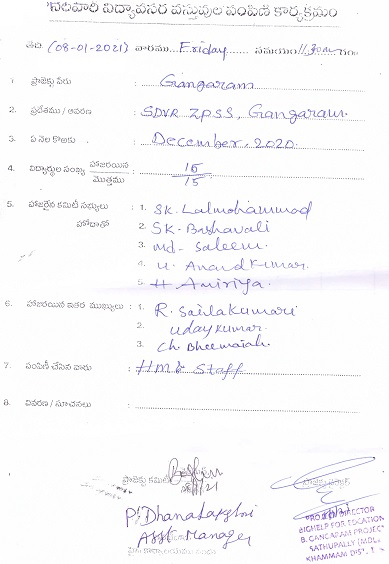 నిరుపేద విద్యావసర వస్తువుల పంపిణీ కార్యక్రమం
తేది (08-01-2021) వారము Friday సమయం 11:30am
1. ప్రాజెక్టు పేరు : Gangaram
2. ప్రదేశము / ఆవరణ : SDVR ZPSS, Gangaram.
3. ఏ నెల కొఱకు : December, 2020
4. విద్యార్థుల సంఖ్య హాజరయిన / మొత్తము : 15/15
5. హాజరైన కమిటీ సభ్యులు హోదాతో : 1. SK. Lalmohammod
2. SK- Bashavali
3. md- Saleem.
4. U. Anandkumar
5. H Amiriya.
6. హాజరయిన ఇతర ముఖ్యులు : 1. R. Sailakumari
2. Udaykumar.
3. Ch. Bheemaiah.
7. పంపిణీ చేసిన వారు : HMB Staff
8. వివరణ / సూచనలు :
ప్రాజెక్టు కమిటీ
P. Dhanalaxmi
Asst Manager
PROJECT DIRECTOR
BIGHELP FOR EDUCATION
B. GANGARAM PROJECT
SATHUPALLY (MDL)
KHAMMAM DIST.